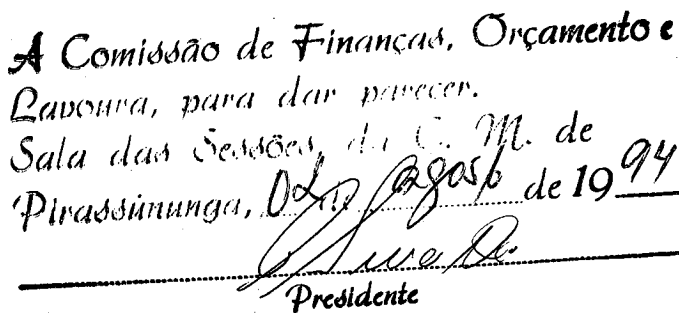 A Comissão de Finanças, Orçamento e
Lavoura, para dar parecer.
Sala das Sessões, da C. M. de
Pirassununga, 02 de agosto de 1994
Presidente